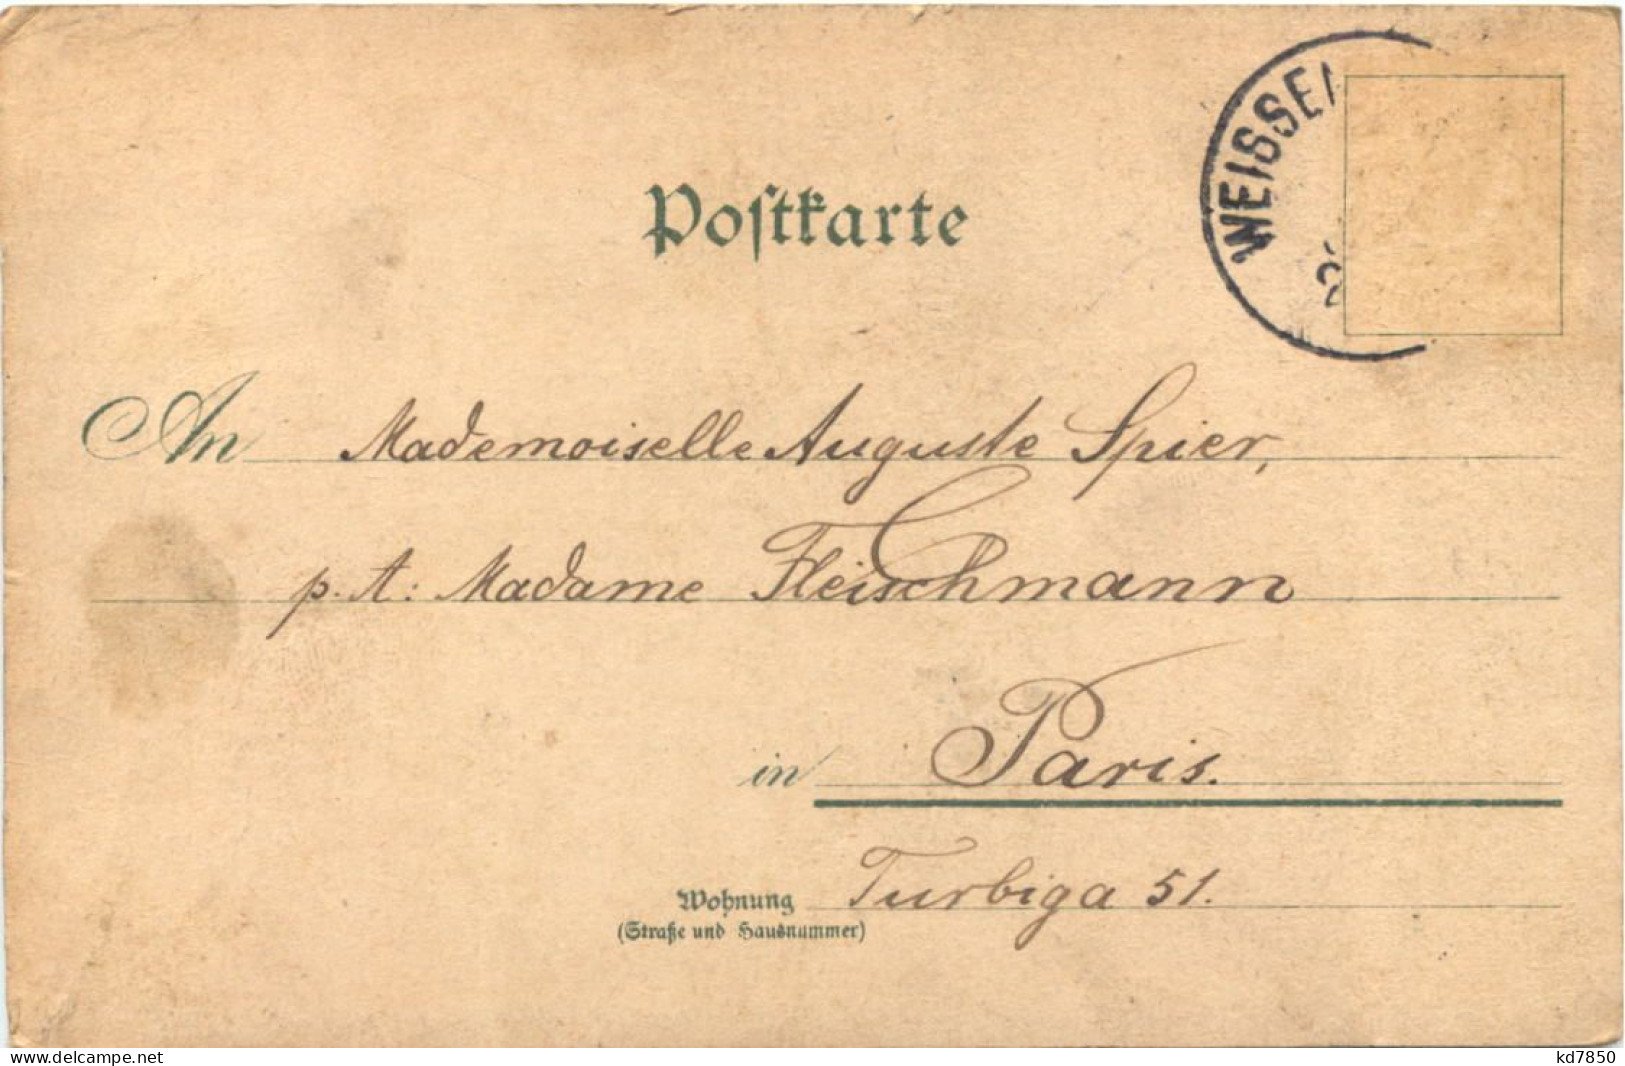 Postkarte
WEISSE
2
An Mademoiselle Auguste Spier,
p. A: Madame Fleischmann
in Paris.
Wohnung Turbiga 51.
(Straße und Hausnummer)
www.delcampe.net
kd7850